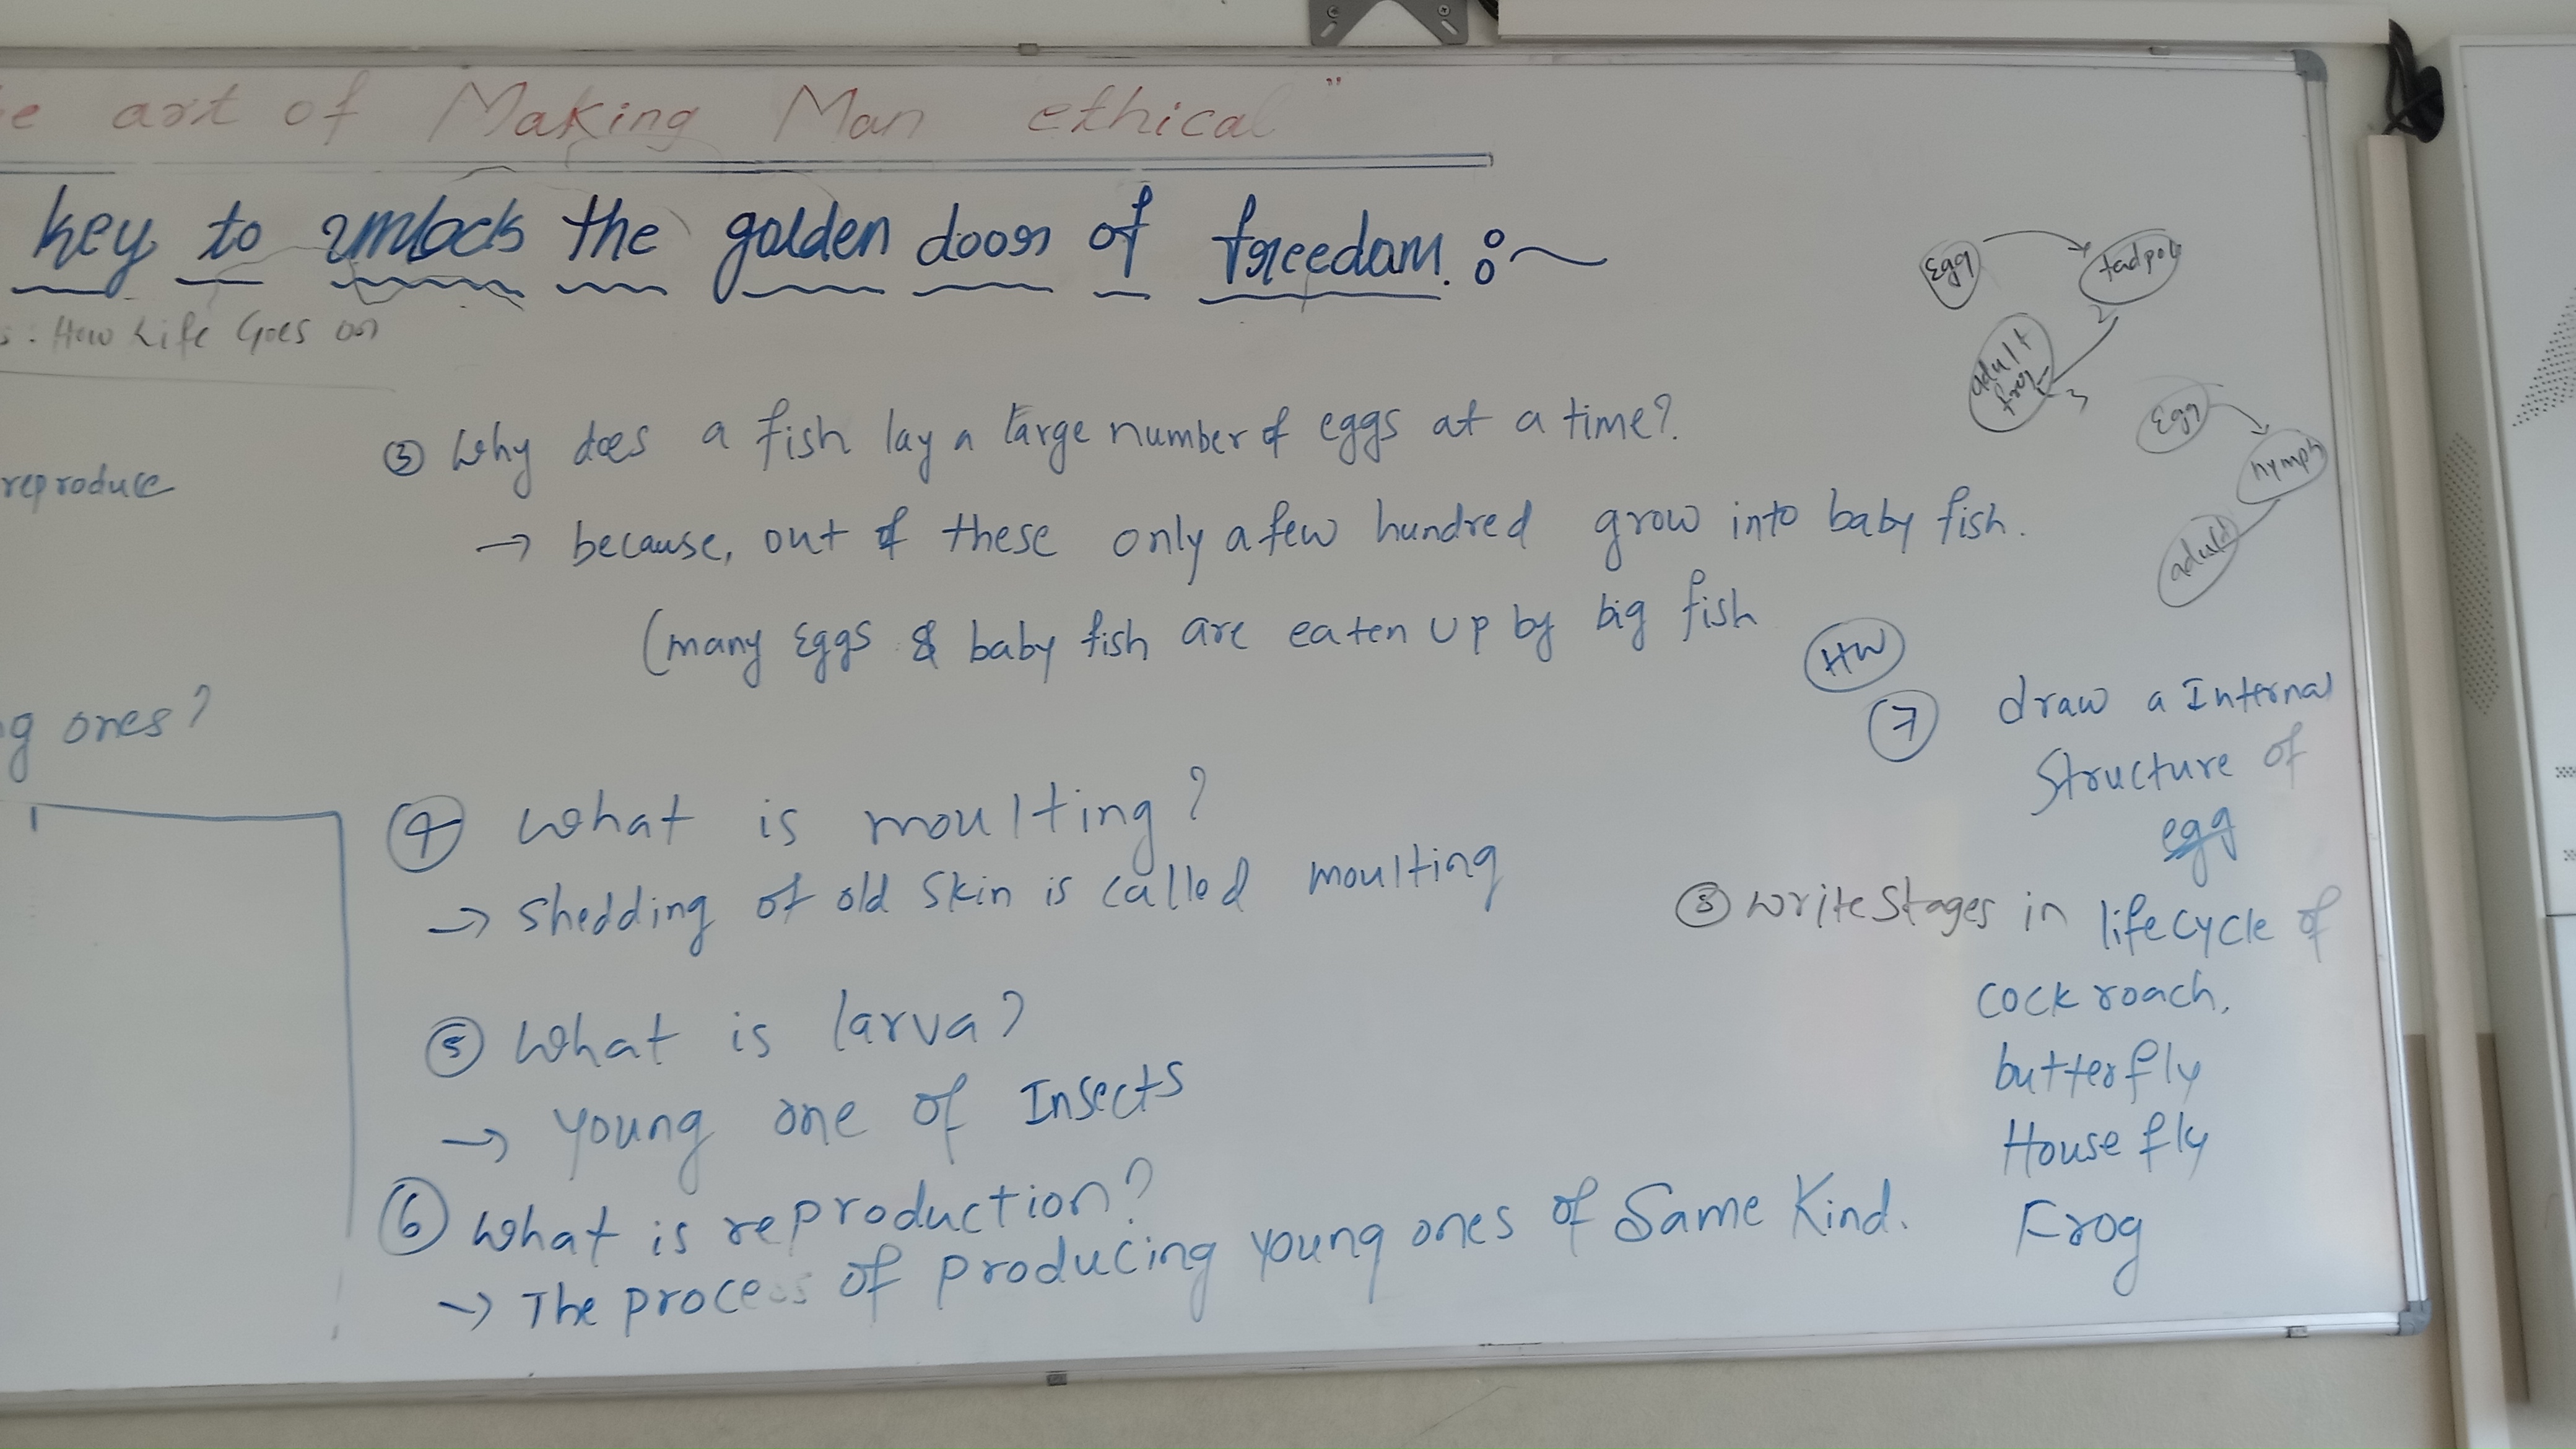 e art of Making Man ethical"
key to unlock the golden door of freedom :~
s : How Life Goes on
reproduce
g ones?
③ Why does a fish lay a large number of eggs at a time?
→ because, out of these only a few hundred grow into baby fish.
(many Eggs & baby fish are eaten up by big fish
④ What is moulting?
→ Shedding of old Skin is called moulting
⑤ What is larva?
→ Young one of Insects
⑥ What is reproduction?
→ The process of producing young ones of Same Kind.
Egg
tadpole
2
adult
frog
3
Egg
nymph
adult
HW
⑦ draw a Internal
Structure of
egg
⑧ write Stages in lifecycle of
cockroach,
butterfly
House fly
Frog